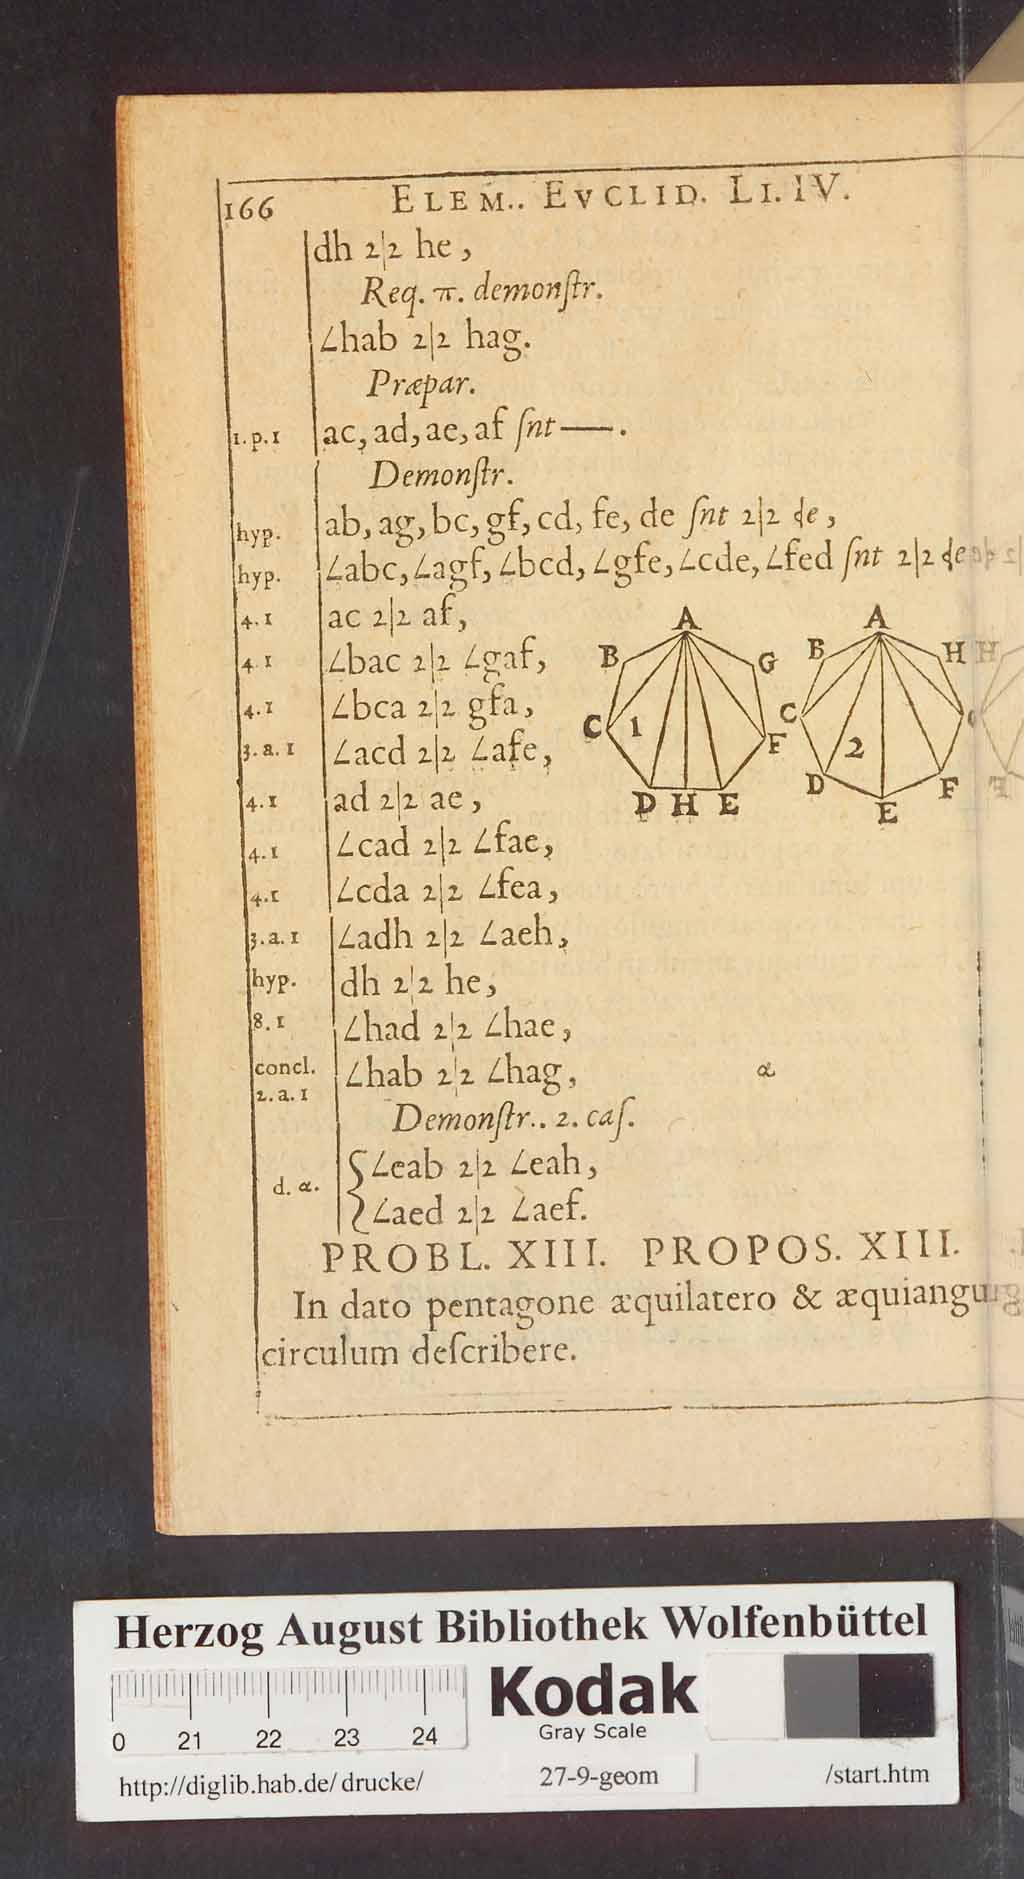 166 ELEM.. EVCLID. LI. IV.
dh 2|2 he,
Req. π. demonſtr.
∠hab 2|2 hag.
Præpar.
1. p. 1 ac, ad, ae, af ſnt —.
Demonſtr.
hyp. ab, ag, bc, gf, cd, fe, de ſnt 2|2
hyp. ∠abc, ∠agf, ∠bcd, ∠gfe, ∠cde, ∠fed ſnt 2|2
4. 1 ac 2|2 af,
4. 1 ∠bac 2|2 ∠gaf,
4. 1 ∠bca 2|2 gfa,
3. a. 1 ∠acd 2|2 ∠afe,
4. 1 ad 2|2 ae,
4. 1 ∠cad 2|2 ∠fae,
4. 1 ∠cda 2|2 ∠fea,
3. a. 1 ∠adh 2|2 ∠aeh,
hyp. dh 2|2 he,
8. 1 ∠had 2|2 ∠hae,
concl. ∠hab 2|2 ∠hag, α
2. a. 1
Demonſtr.. 2. caſ.
∠eab 2|2 ∠eah,
d. α.
∠aed 2|2 ∠aef.
A
B
G
C
1
F
D H E
A
B
H
C
2
D
F
E
PROBL. XIII. PROPOS. XIII.
In dato pentagone æquilatero & æquiangu
circulum deſcribere.
Herzog August Bibliothek Wolfenbüttel
Kodak
Gray Scale
0 21 22 23 24
http://diglib.hab.de/drucke/ 27-9-geom /start.htm